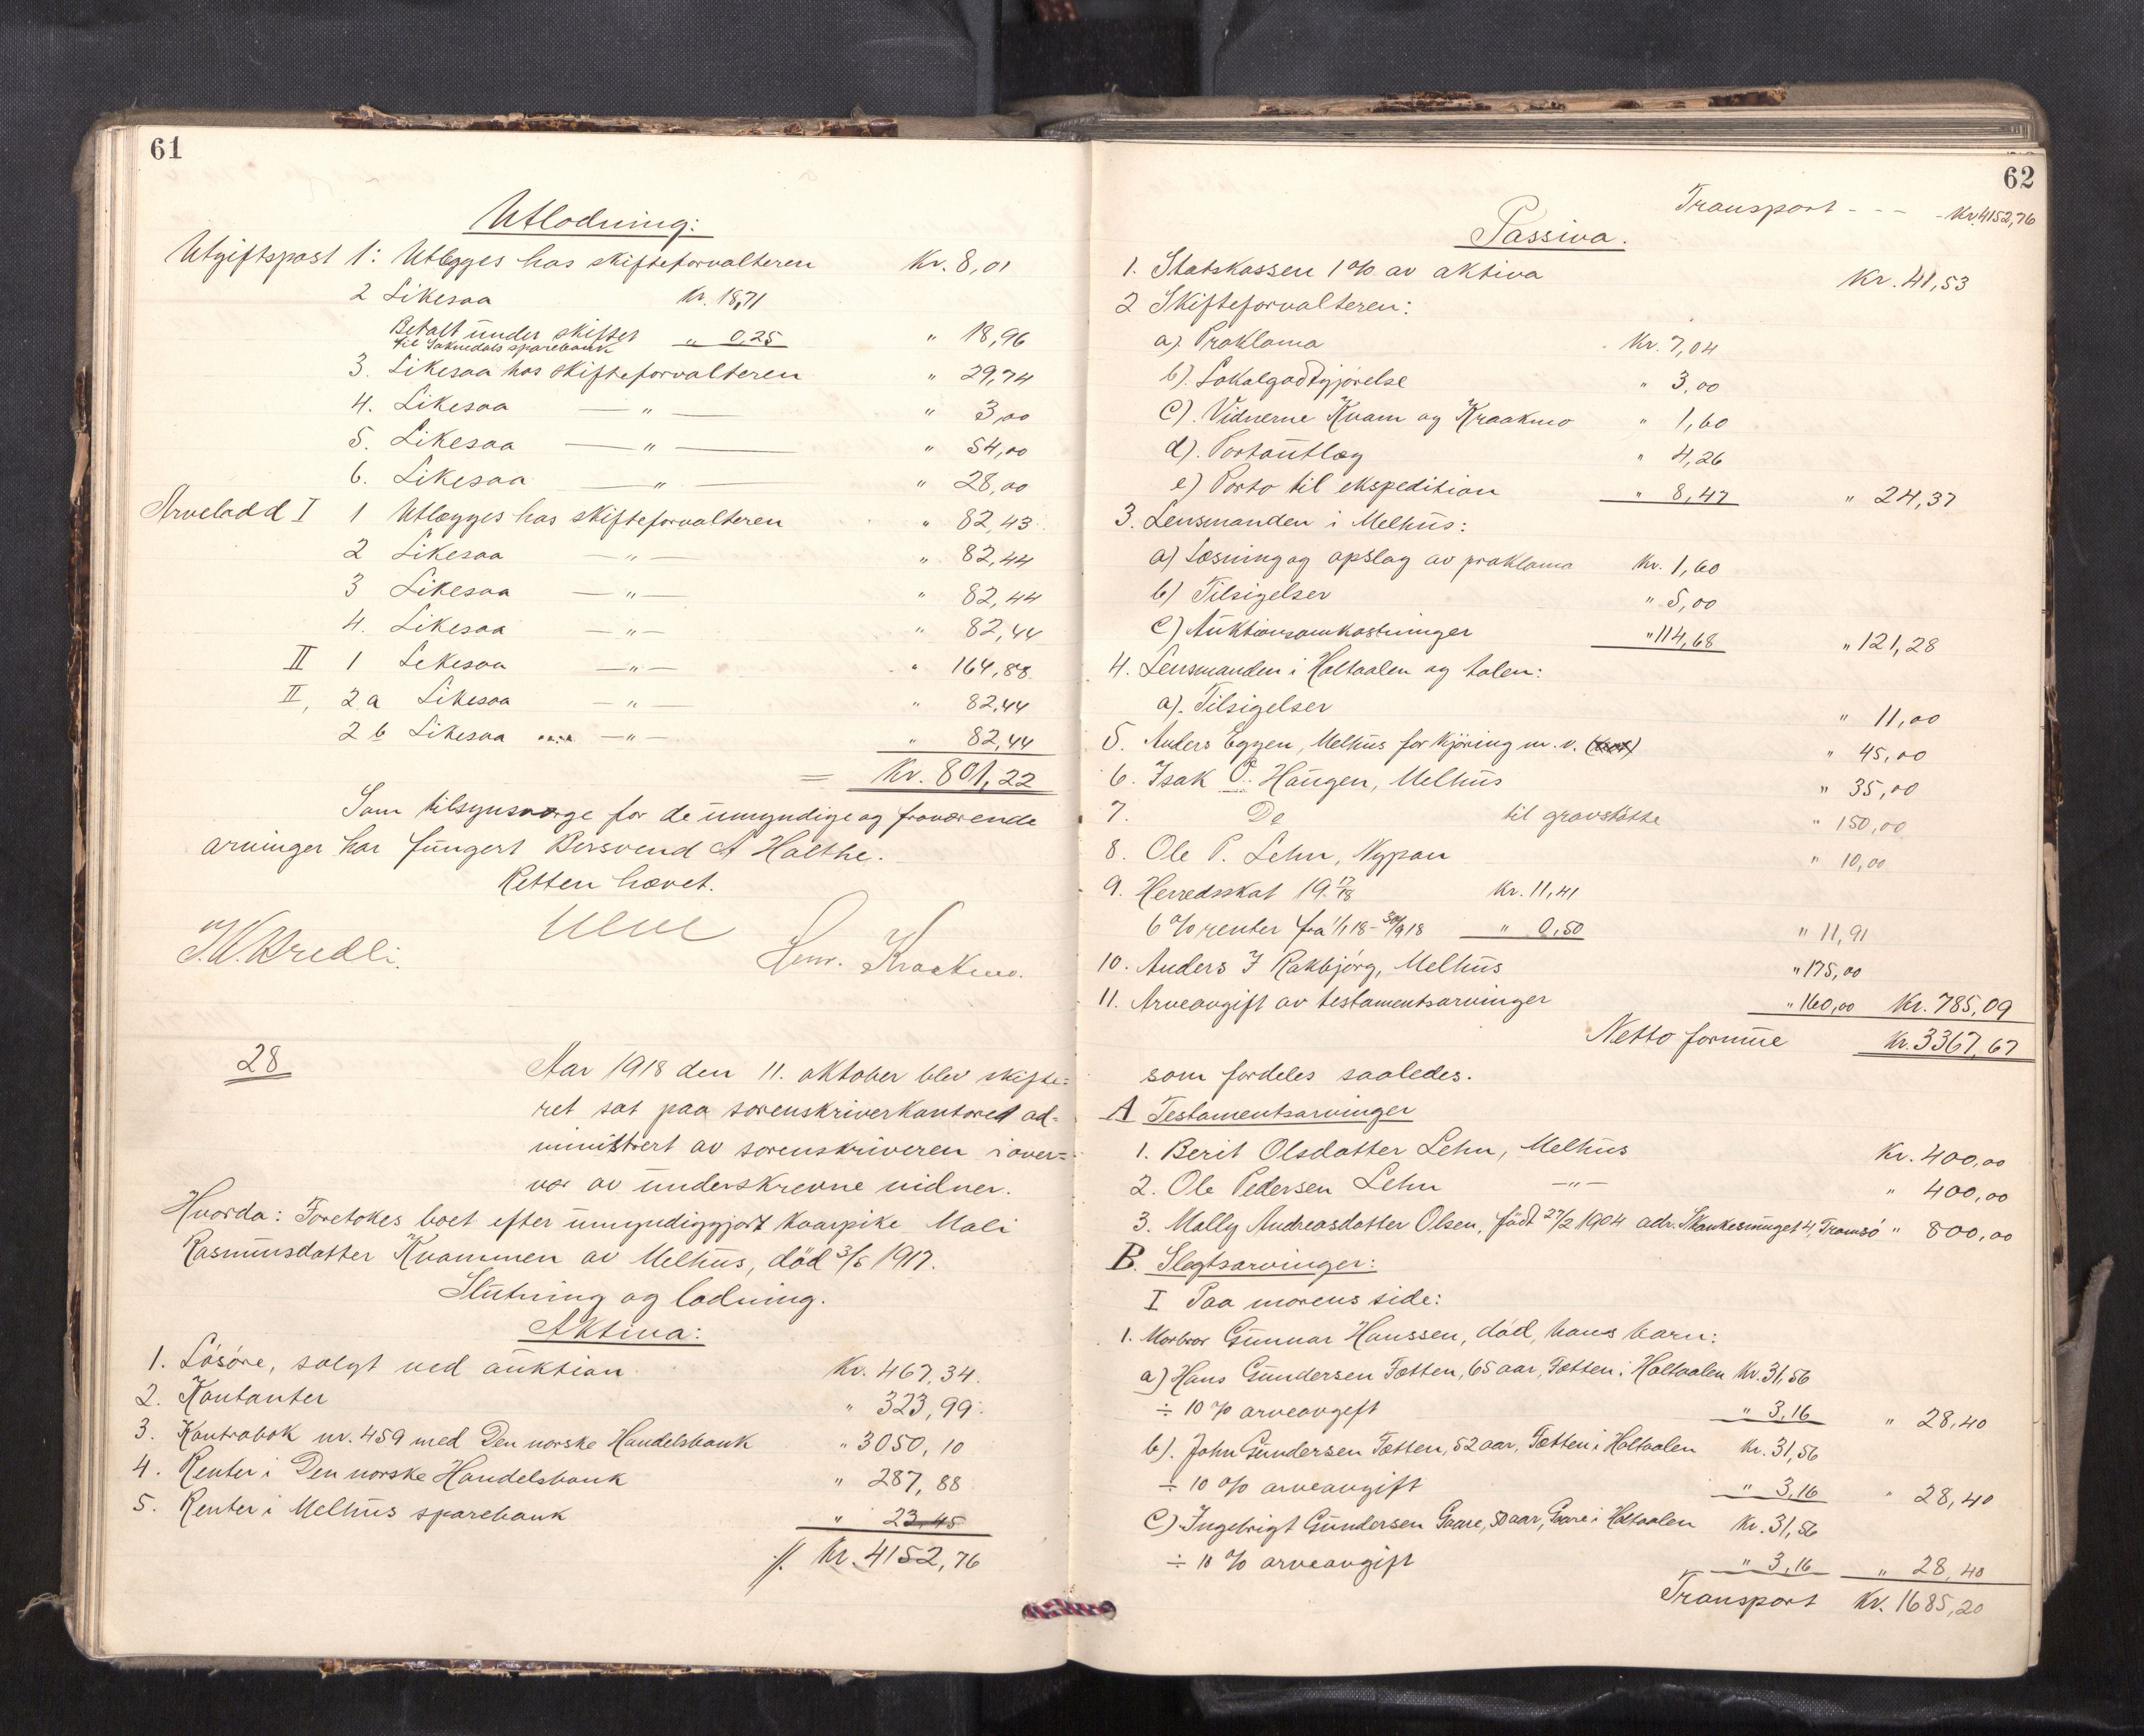 61
Utlodning:
Utgiftspost 1: Utlægges hos skifteforvalteren Kr. 8,01
2 Likesaa Kr. 18,71
Betalt under skiftet
til Soknedals sparebank " 0,25 " 18,96
3. Likesaa hos skifteforvalteren " 29,74
4. Likesaa — " — " 3,00
5. Likesaa — " — " 54,00
6. Likesaa — " — " 28,00
Arvelodd I 1 Utlægges hos skifteforvalteren " 82,43
2 Likesaa — " — " 82,44
3 Likesaa — " — " 82,44
4. Likesaa — " — " 82,44
II 1 Likesaa — " — " 164,88
II, 2a Likesaa — " — " 82,44
2 b Likesaa — " — " 82,44
= Kr. 801,22
Som tilsynsværge for de umyndige og fraværende
arvinger har fungert Bersvend A Halthe.
Retten hævet.
Henr. Kraakmo.
28
Aar 1918 den 11. oktober blev skifte=
ret sat paa sorenskriverkontoret ad=
ministrert av sorenskriveren i over=
vær av underskrevne vidner.
Hvorda: Foretokes boet efter umyndiggjort kaarpike Mali
Rasmusdatter Kvammen av Melhus, död 3/5 1917.
Slutning og lodning.
Aktiva:
1. Lösöre, solgt ved auktion Kr. 467,34.
2. Kontanter " 323,99.
3. Kontrabok nr. 459 med Den norske Handelsbank " 3050,10
4. Renter i Den norske Handelsbank " 287,88
5. Renter i Melhus sparebank " 23,45
//. Kr. 4152,76
62
Transport - - - - Kr. 4152,76
Passiva.
1. Statskassen 1% av aktiva Kr. 41,53
2 Skifteforvalteren:
a). Proklama Kr. 7,04
b). Lokalgodtgjörelse " 3,00
c). Vidnerne Kvam og Kraakmo " 1,60
d). Portoutlæg " 4,26
e) Porto til ekspedition " 8,47 " 24,37
3. Lensmanden i Melhus:
a) Læsning og opslag av proklama Kr. 1,60
b) Tilsigelser " 5,00
c) Auktionsomkostninger " 114,68 " 121,28
4. Lensmanden i Holtaalen og Aalen:
a). Tilsigelser " 11,00
5. Anders Eggen, Melhus for kjöring m. v. " 45,00
6. Isak O. Haugen, Melhus " 35,00
7. Do til gravstötte " 150,00
8. Ole P. Lehn, Nypan " 10,00
9. Herredsskat 19 17/18 Kr. 11,41
6 % renter fra 1/1 18 - 30/9 18 " 0,50 " 11,91
10. Anders I Rakbjörg, Melhus " 175,00
11. Arveavgift av testamentsarvinger " 160,00 Kr. 785,09
Netto formue Kr. 3367,67
som fordeles saaledes.
A Testamentsarvinger
1. Berit Olsdatter Lehn, Melhus Kr. 400,00
2. Ole Pedersen Lehn — " — " 400,00
3. Mally Andreasdatter Olsen, födt 27/2 1904 adr. Skankesmuget 4, Tromsö " 800,00
B. Slegtsarvinger:
I Paa morens side:
1. Morbror Gunnar Hanssen, död, hans barn:
a) Hans Gundersen Tætten, 65 aar, Tætten i Holtaalen Kr. 31,56
÷ 10 % arveavgift " 3,16 " 28,40
b). John Gundersen Tætten, 52 aar, Tætten i Holtaalen Kr. 31,56
÷ 10 % arveavgift " 3,16 " 28,40
c) Ingebrigt Gundersen Gaare, 50 aar, Gaare i Holtaalen Kr. 31,56
÷ 10 % arveavgift " 3,16 " 28,40
Transport Kr. 1685,20